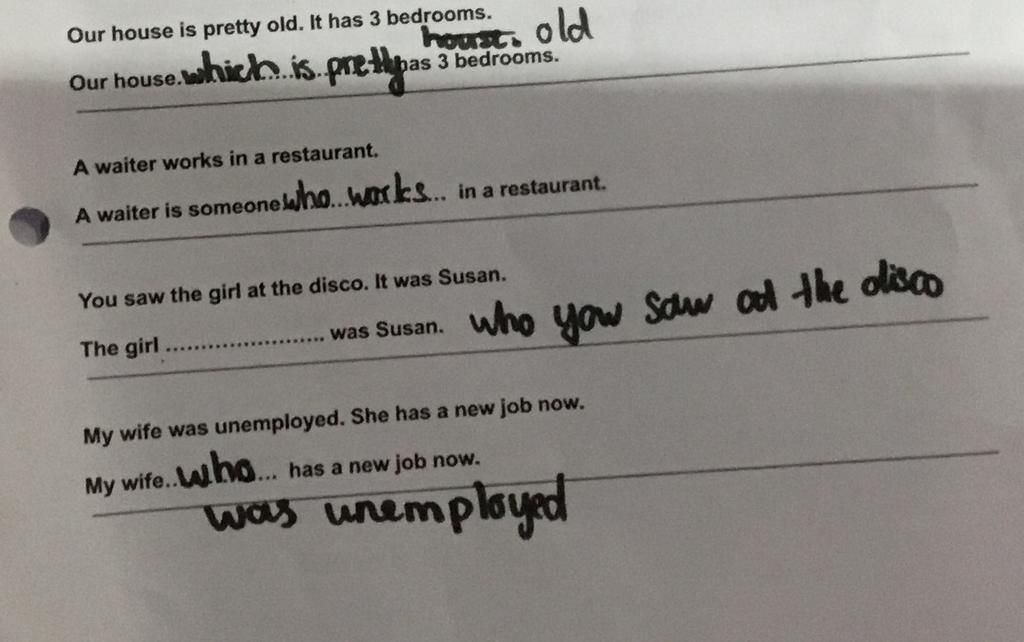 Our house is pretty old. It has 3 bedrooms.
house. old
Our house.which....is..pretty has 3 bedrooms.
A waiter works in a restaurant.
A waiter is someone who...works... in a restaurant.
You saw the girl at the disco. It was Susan.
The girl ........................ was Susan. who you saw at the disco
My wife was unemployed. She has a new job now.
My wife..who... has a new job now.
was unemployed